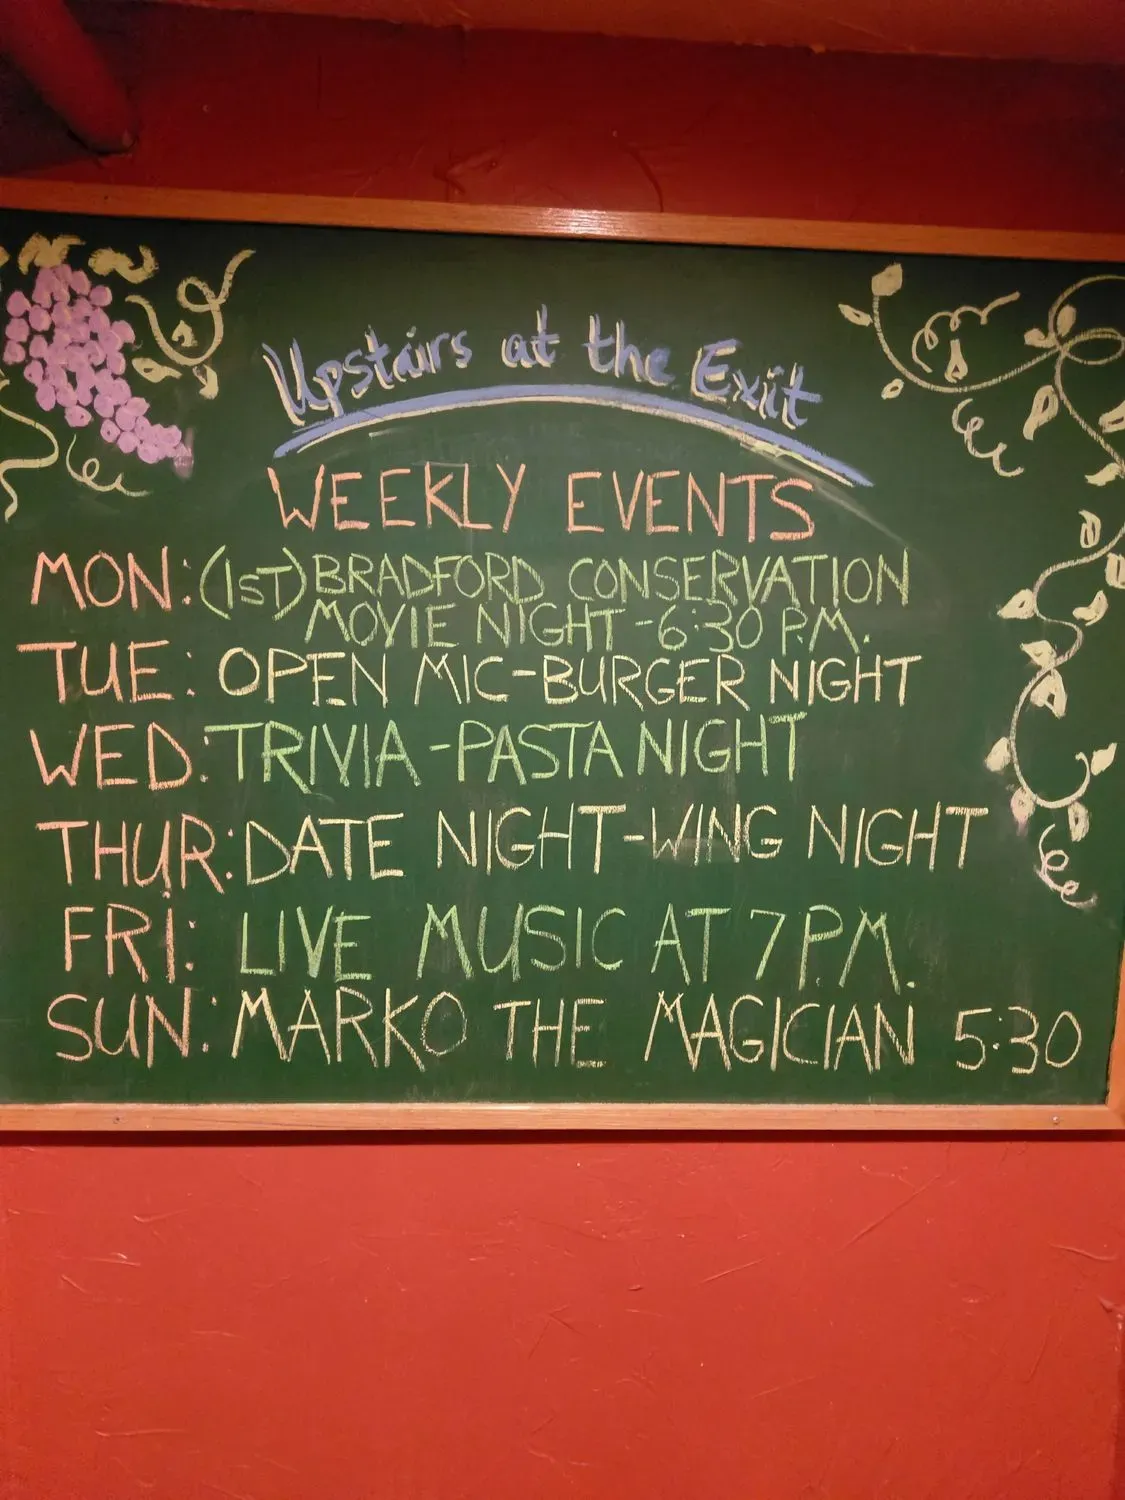 Upstairs at the Exiit
WEEKLY EVENTS
MON: (1ST) BRADFORD CONSERVATION
MOVIE NIGHT - 6:30 P.M.
TUE: OPEN MIC-BURGER NIGHT
WED: TRIVIA - PASTA NIGHT
THUR: DATE NIGHT-WING NIGHT
FRI: LIVE MUSIC AT 7 P.M.
SUN: MARKO THE MAGICIAN 5:30